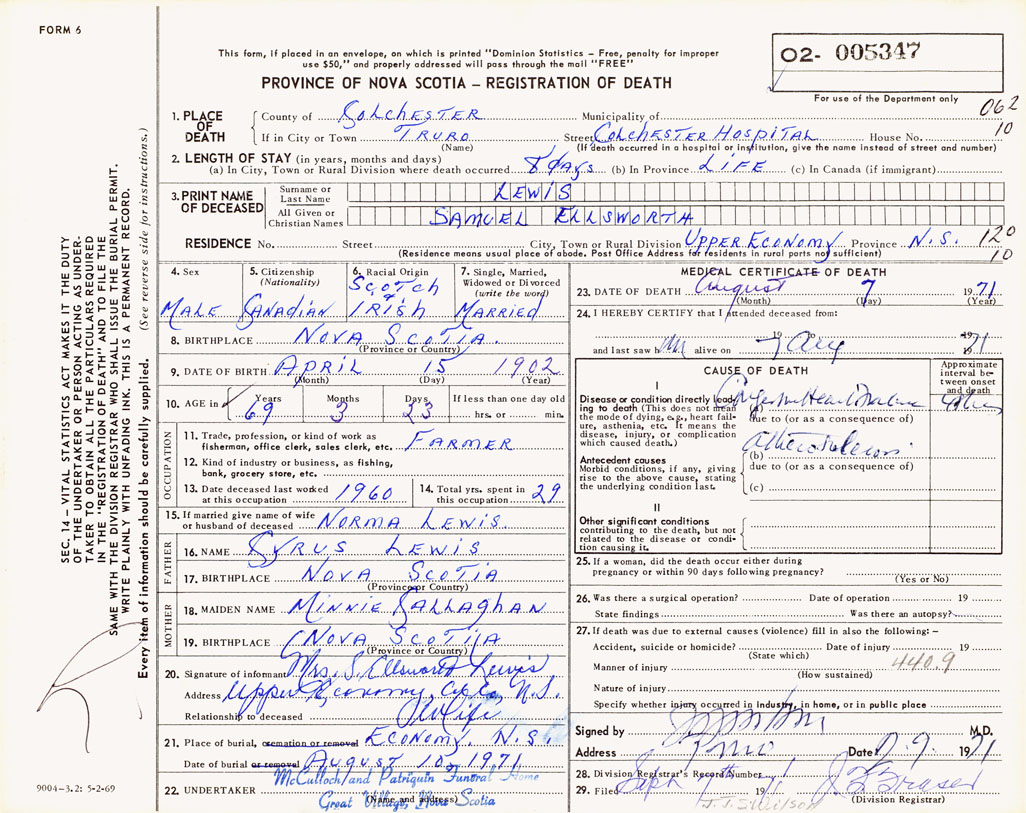 FORM 6
This form, if placed in an envelope, on which is printed "Dominion Statistics – Free, penalty for improper
use $50," and properly addressed will pass through the mail "FREE"
PROVINCE OF NOVA SCOTIA – REGISTRATION OF DEATH
O2- 005347
For use of the Department only
062
10
1. PLACE OF DEATH
County of COLCHESTER Municipality of
If in City or Town TRURO Street COLCHESTER HOSPITAL House No.
(Name) (If death occurred in a hospital or institution, give the name instead of street and number)
2. LENGTH OF STAY (in years, months and days)
(a) In City, Town or Rural Division where death occurred 8 days (b) In Province LIFE (c) In Canada (if immigrant)
3. PRINT NAME OF DECEASED
Surname or Last Name LEWIS
All Given or Christian Names SAMUEL ELLSWORTH
RESIDENCE No. Street City, Town or Rural Division UPPER ECONOMY Province N.S. 120
(Residence means usual place of abode. Post Office Address for residents in rural parts not sufficient) 10
4. Sex MALE
5. Citizenship (Nationality) CANADIAN
6. Racial Origin SCOTCH & IRISH
7. Single, Married, Widowed or Divorced (write the word) MARRIED
8. BIRTHPLACE NOVA SCOTIA.
(Province or Country)
9. DATE OF BIRTH APRIL 15 1902
(Month) (Day) (Year)
10. AGE in Years 69 Months 3 Days 23 If less than one day old hrs. or min.
OCCUPATION
11. Trade, profession, or kind of work as fisherman, office clerk, sales clerk, etc. FARMER
12. Kind of industry or business, as fishing, bank, grocery store, etc.
13. Date deceased last worked at this occupation 1960
14. Total yrs. spent in this occupation 29
15. If married give name of wife or husband of deceased NORMA LEWIS.
FATHER
16. NAME SYRUS LEWIS
17. BIRTHPLACE NOVA SCOTIA
(Province or Country)
MOTHER
18. MAIDEN NAME MINNIE CALLAGHAN
19. BIRTHPLACE NOVA SCOTIA
(Province or Country)
20. Signature of informant Mrs. S. Ellsworth Lewis
Address Upper Economy, N.S.
Relationship to deceased Wife
21. Place of burial, cremation or removal ECONOMY. N.S.
Date of burial or removal AUGUST 10, 1971
22. UNDERTAKER McCulloch and Patriquin Funeral Home
(Name and address) Great Village, Nova Scotia
MEDICAL CERTIFICATE OF DEATH
23. DATE OF DEATH August 7 1971
(Month) (Day) (Year)
24. I HEREBY CERTIFY that I attended deceased from:
19
and last saw him alive on 7 Aug 1971
CAUSE OF DEATH
Approximate interval between onset and death
I
Disease or condition directly leading to death (This does not mean the mode of dying, e.g., heart failure, asthenia, etc. It means the disease, injury, or complication which caused death.)
(a) Congestive Heart Failure
due to (or as a consequence of)
Antecedent causes
Morbid conditions, if any, giving rise to the above cause, stating the underlying condition last.
(b)
due to (or as a consequence of)
(c)
II
Other significant conditions
contributing to the death, but not related to the disease or condition causing it.
25. If a woman, did the death occur either during
pregnancy or within 90 days following pregnancy?
(Yes or No)
26. Was there a surgical operation? Date of operation 19
State findings Was there an autopsy?
27. If death was due to external causes (violence) fill in also the following: –
Accident, suicide or homicide? Date of injury 19
(State which)
Manner of injury 440.9
(How sustained)
Nature of injury
Specify whether injury occurred in industry, in home, or in public place
Signed by M.D.
Address Truro Date 9. 1971
28. Division Registrar's Record Number
29. Filed Sept 7th 1971
(Division Registrar)
SEC. 14 – VITAL STATISTICS ACT MAKES IT THE DUTY
OF THE UNDERTAKER OR PERSON ACTING AS UNDER-
TAKER TO OBTAIN ALL THE PARTICULARS REQUIRED
IN THE "REGISTRATION OF DEATH" AND TO FILE THE
SAME WITH THE DIVISION REGISTRAR WHO SHALL ISSUE THE BURIAL PERMIT.
WRITE PLAINLY WITH UNFADING INK. THIS IS A PERMANENT RECORD.
Every item of information should be carefully supplied. (See reverse side for instructions.)
9004-3.2: 5-2-69